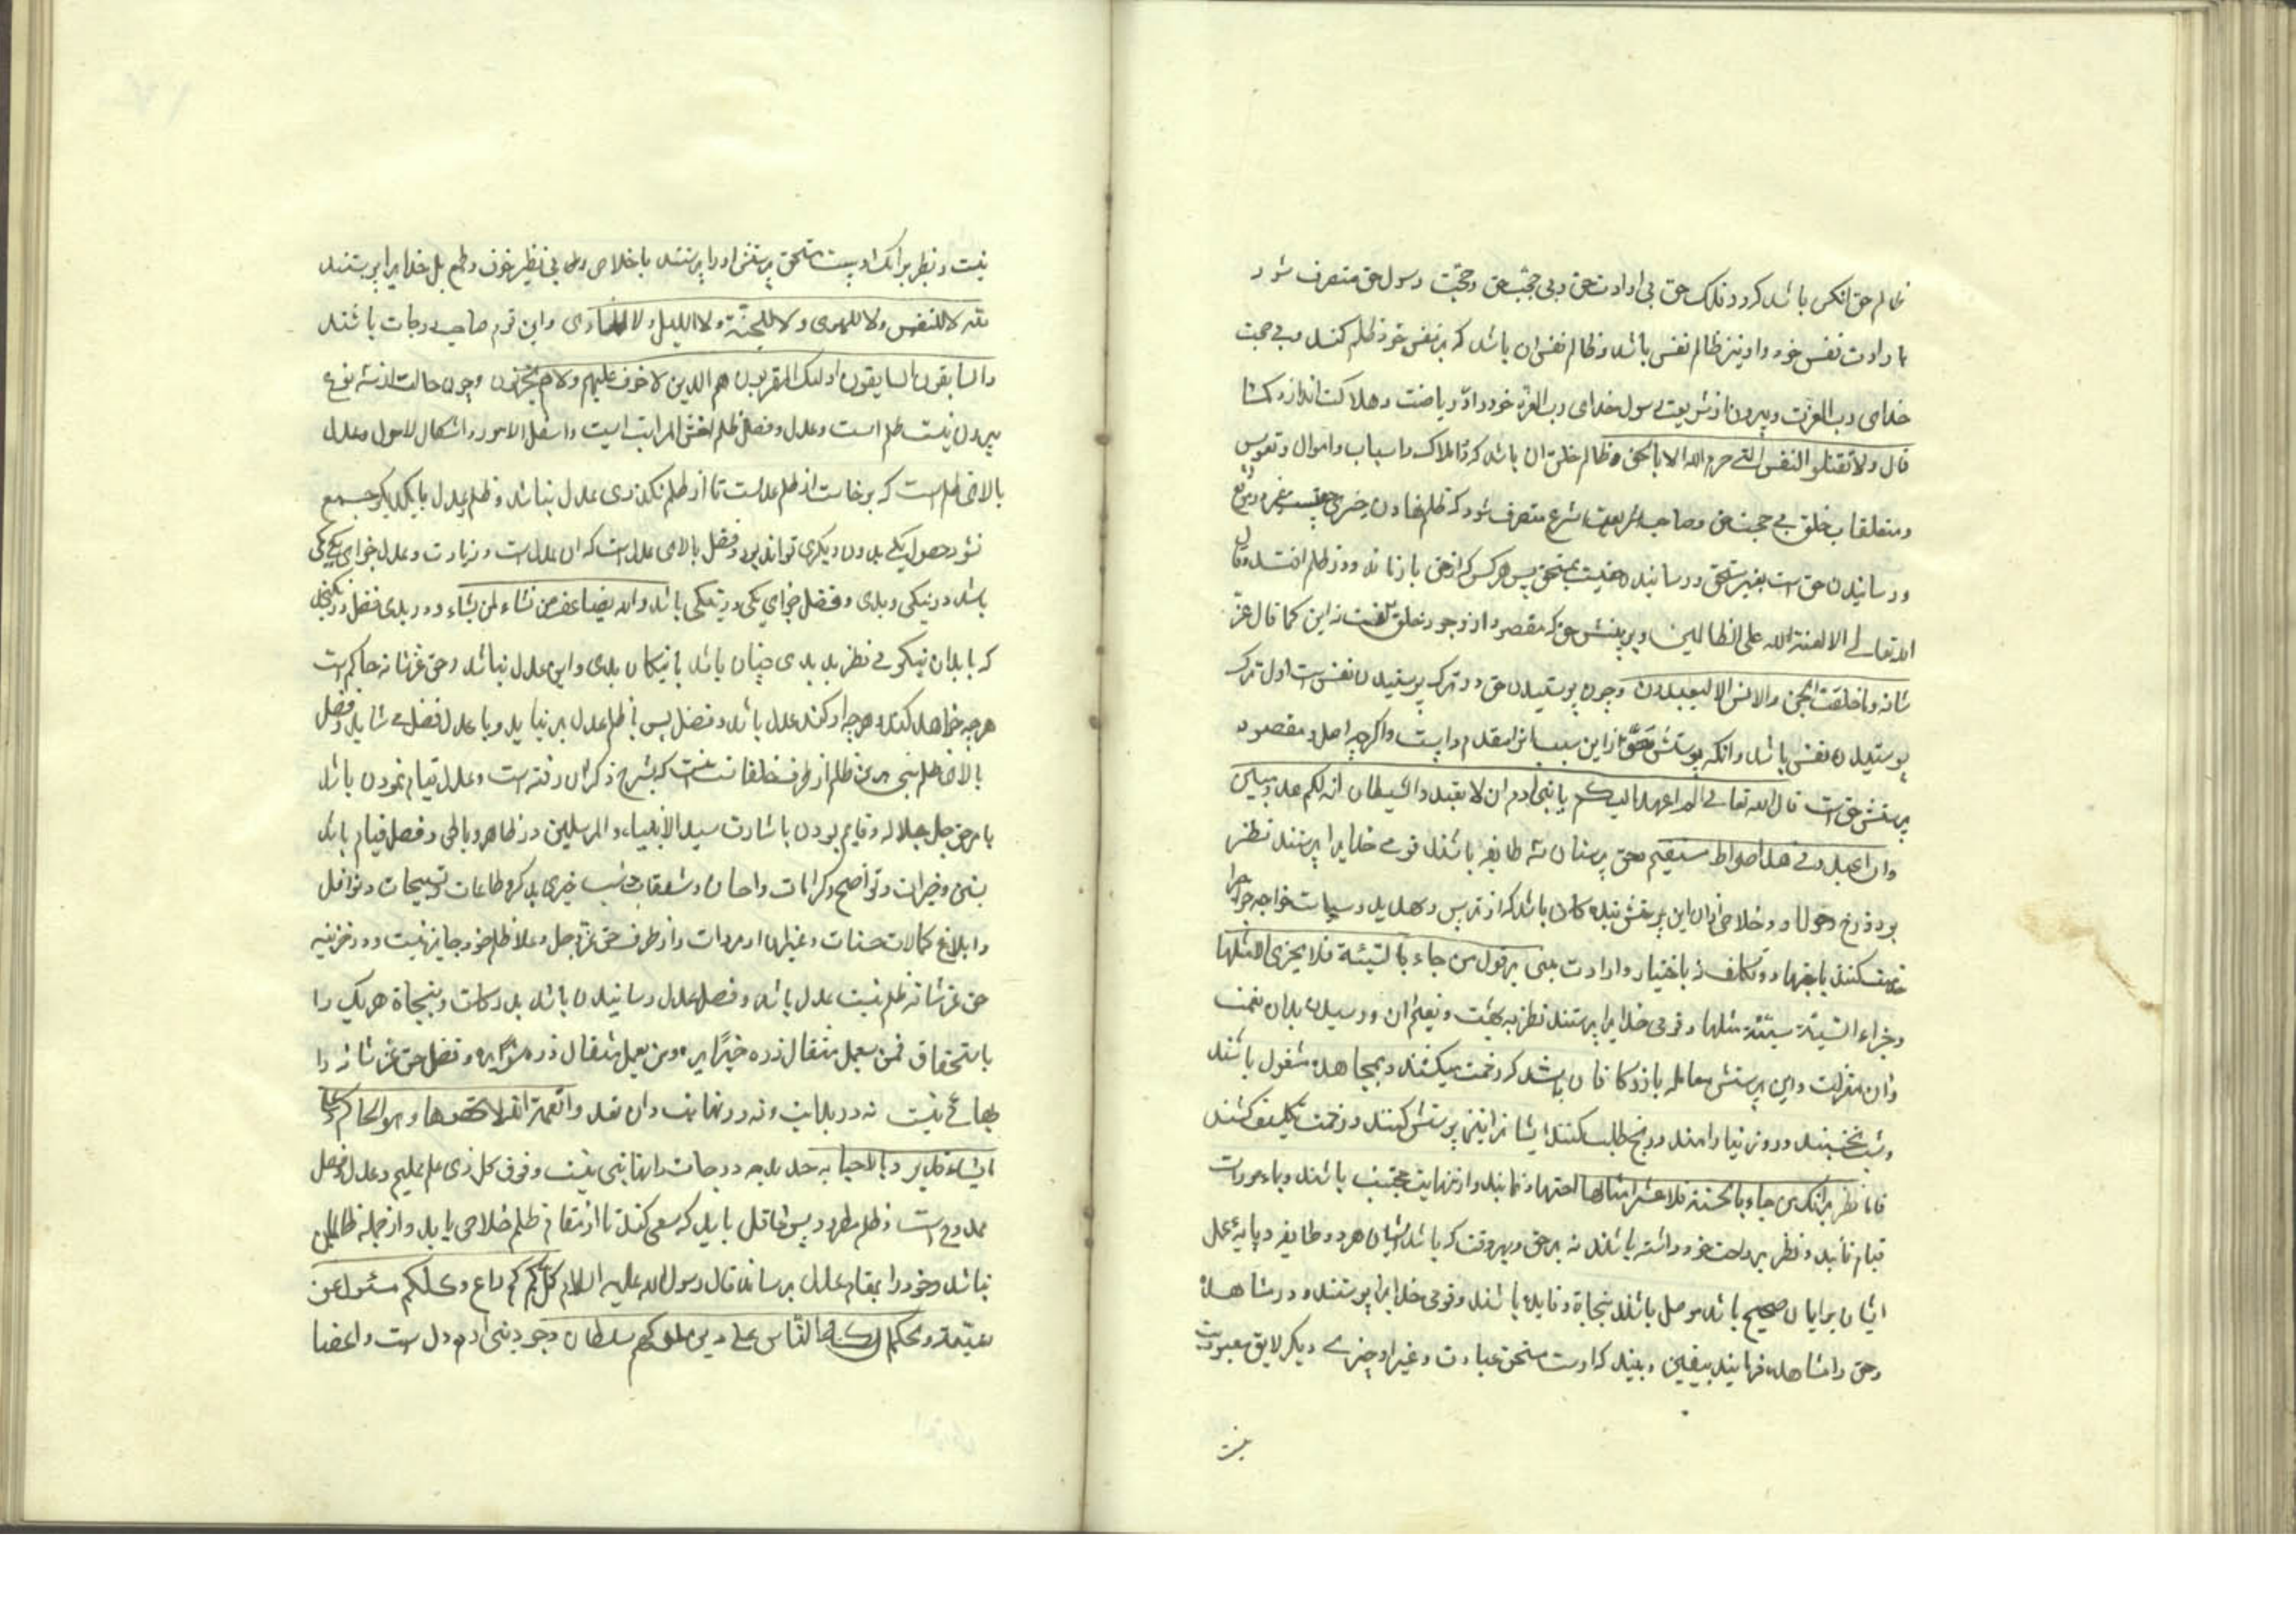 ظالم حق انکس باشد که در ملک حق بی ارادت حق و بی حجت حق و حجت رسول حق متصرف شود
با رادت نفس خود و او نیز ظالم نفس باشد و ظالم نفس ان باشد که بر نفس خود ظلم کند و بی حجت
خدای رب العزت و بیرون از شریعت رسول خدای رب العزة خود را در ریاضت و هلاکت اندازد کما
قال ولا تقتلوا النفس التی حرم الله الا بالحق و ظالم خلق ان باشد که در املاک و اسباب و اموال و نفوس
و متعلقات خلق بی حجت حق و صاحب شریعت شرع متصرف شود که ظلم نهادن چیزی در غیر موضع
و رسانیدن حق است بغیر مستحق و رسانیدن بمستحق پس هر کس که از حق باز ماند در ظلم افتد و قال
الله تعالی الا لعنة الله علی الظالمین و پرستش حق که مقصود از وجود خلق نه این کما قال عز
شانه وما خلقت الجن والانس الا لیعبدون و چون پرستیدن حق در ترک پرستیدن نفس است اول ترک
پرستیدن نفس باشد و انکه پرستش حق از این سبب انرا مقدم داشت و اکرچه اصل و مقصود
پرستش حق است قال الله تعالی الم اعهد الیکم یا بنی ادم ان لا تعبدوا الشیطان انه لکم عدو مبین
وان اعبدونی هذا صراط مستقیم و حق پرستان سه طایفه باشند قومی خدایرا پرستند نظر
بر دوزخ و خلاص از ان این پرستش بندکان باشد که از ترس و تهدید و سیاست خواجه خواجه را
خدمت کنند با و تکلف نه باختیار و ارادت مبنی بر قول من جاء بالسیئة فلا یجزی الا مثلها
وجزاء السیئة سیئة مثلها و قومی خدایرا پرستند نظر به بهشت و نعیم ان و رسیدن بدان نعمت
وان منزلت و این پرستش معامله بازرکانان باشد که زحمت میکشند و بمجاهده مشغول باشند
و شب نخسبند و روز نیارامند و ربح طلب کنند ایشان نیز پرستش کنند و زحمت تکلیف کشند
فاما نظر بر انکه من جاء بالحسنة فله عشر امثالها اجتهاد نمایند و از منهیات مجتنب باشند و باوامر
قیام نمایند و نظر بر راحت خود داشته باشند نه بر حق و بهر وقت که باشد ایشان هر دو طایفه و پایه عمل
ایشان بر ایمان صحیح باشد موصل باشند بنجاة و فایده باشند و قومی خدایرا پرستند و در مشاهده
و حق را مشاهده فرمایند بیقین و بینند که اوست مستحق عبادت و غیر او چیزی دیکر لایق معبودیت
نیست
نیست و نظر بر انک اوست مستحق پرستش او را پرستند باخلاص دل بی نظر خوف و طمع بل خدایرا پرستند
لله لا للنفس ولا للهوی ولا للجنة ولا اللیل ولا و این قوم صاحب درجات باشند
والسابقون السابقون اولئک المقربون هم الذین لا خوف علیهم ولا هم یحزنون و چون حالت از سه نوع
بیرون نیست ظلم است و عدل و فضل ظلم اخس المراتب است و اسفل الامور و اشکال لاحول و عدل
بالای ظلم است که برخاست از ظلم عدلست تا از ظلم نکذری عدل نباشد و ظلم و عدل با یکدیکر جمع
نشود حصول یکی بدون دیکری تواند بود و فضل بالای عدل است که ان عدل است و زیادت و عدل جزای یکی یکی
باشد در نیکی و بدی و فضل جزای یکی در نیکی باشد والله یضاعف من نشاء لمن یشاء و در بدی فضل در نکنجد
که با بدان نیکویی نظر بد بدی چنان باشد با نیکان بدی و این عدل نباشد و حق عز شانه حاکم است
هرچه خواهد کند و هرچه او کند عدل باشد و فضل پس با ظلم عدل بر نیاید و با عدل فضل شاید و فضل
بالای ظلم ظلم از طرف خلقانست که بشرح ذکر ان رفته است و عدل قیام نمودن باشد
بامر حق جل جلاله و قایم بودن باشارت سید الانبیاء والمرسلین در ظاهر و باطن و فضل قیام باشد
و خیرات و تواضع و کرامات و احسان و شفقات طاعات و تسبیحات و نوافل
و ابلاغ کمالات حسنات و غیر ان و از طرف حق عز و جل و علا ظلم خود جایز نیست و در خزینه
حق عز شانه ظلم نیست عدل باشد و فضل عدل رسانیدن باشد بدرکات و بنجاة هر یک را
باستحقاق فمن یعمل مثقال ذره خیرا یره ومن یعمل مثقال ذره شرا یره و فضل حق عز شانه را
نهایتی نیست نه در بدایت و نه در نهایت وان تعدوا نعمة الله لا تحصوها وهو الحاکم علی
ما یشاء قدیر درجات را نهایتی نیست وفوق کل ذی علم علیم و عدل و فضل
ممدوح است و ظلم مطرود پس عاقل باید که سعی کند تا از مقام ظلم خلاص یابد و از جمله ظالمان
نباشد و خود را بمقام عدل برساند قال رسول الله علیه السلام کلکم راع وکلکم مسئول عن
رعیته الناس علی دین ملوکهم سلطان وجود بنی ادم دل است و اعضا